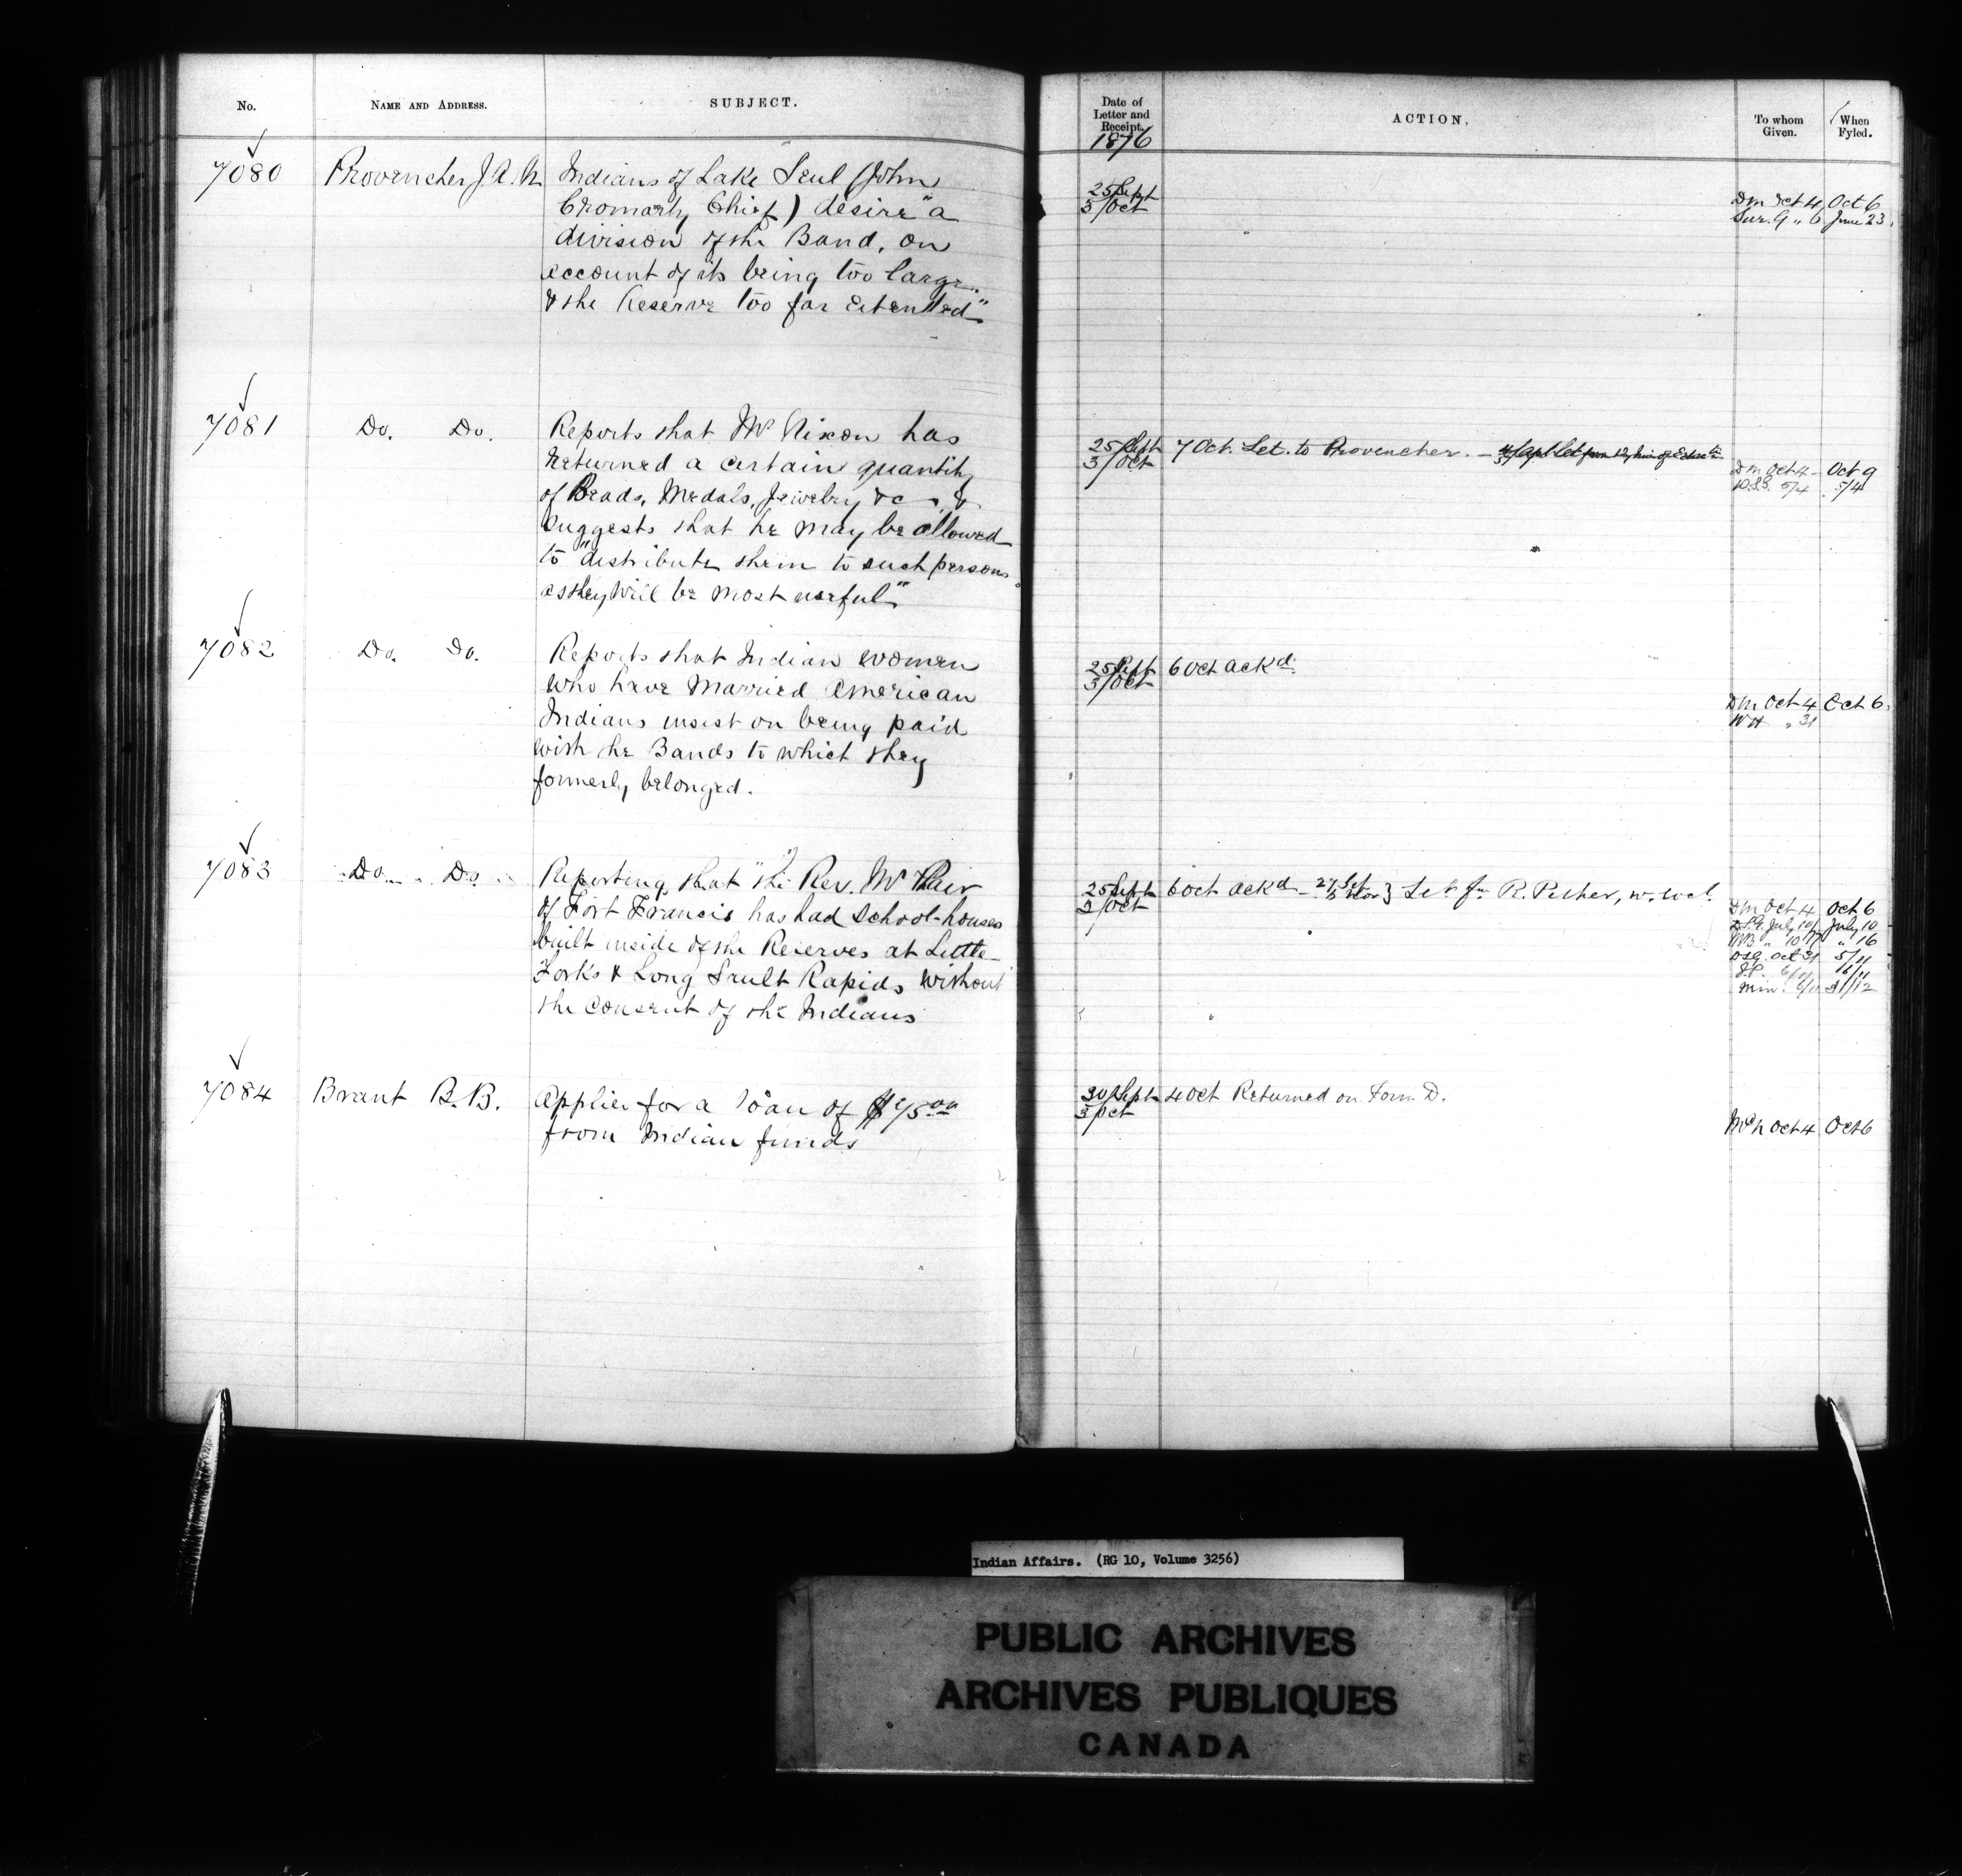 No. NAME AND ADDRESS. SUBJECT.
7080 Provencher J. A. N. Indians of Lake Seul (John
Cromarty Chief) desire "a
division of the Band, on
account of its being too large
& the Reserve too far extended"
7081 Do. Do. Reports that Mr Nixon has
returned a certain quantity
of Beads, Medals, Jewelry &c, &
suggests that he may be allowed
to "distribute them to such persons
as they will be most useful"
7082 Do. Do. Reports that Indian women
who have married American
Indians insist on being paid
with he Bands to which they
formerly belonged.
7083 Do. Do. Reporting that "the Rev. Mr
of Fort Francis has had school-houses
built inside of the Reserves at Little
Forks & Long Sault Rapids without
the consent of the Indians
7084 Brant B. B. Applies for a loan of $75.00
from Indian funds
Date of Letter and Receipt. ACTION, To whom Given. When Fyled.
1876
25/Sept
3/Oct
Dm Oct 4 Oct 6
Sur. G " 6 June 23.
25/Sept 7 Oct. Let. to Provencher. –
3/Oct
Dm Oct 4 Oct 9
5/4 5/4
25/Sept 6 Oct ackd.
3/Oct
Dm Oct 4 Oct 6.
WH " 31
25/Sept 6 Oct ackd – Let. fm R. Pither,
3/Oct
Dm Oct 4 Oct 6
July 10 July 10
" 10 " 16
Oct 31 5/11
6/11 16/11
Min. 31/12
30/Sept 4 Oct Returned on Form D.
3/Oct
McN Oct 4 Oct 6
Indian Affairs. (RG 10, Volume 3256)
PUBLIC ARCHIVES
ARCHIVES PUBLIQUES
CANADA